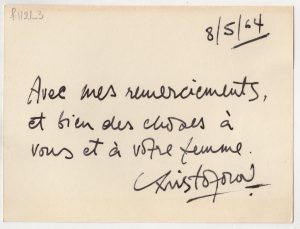 8/5/64
Avec mes remerciements,
et bien des choses à
vous et à votre femme.